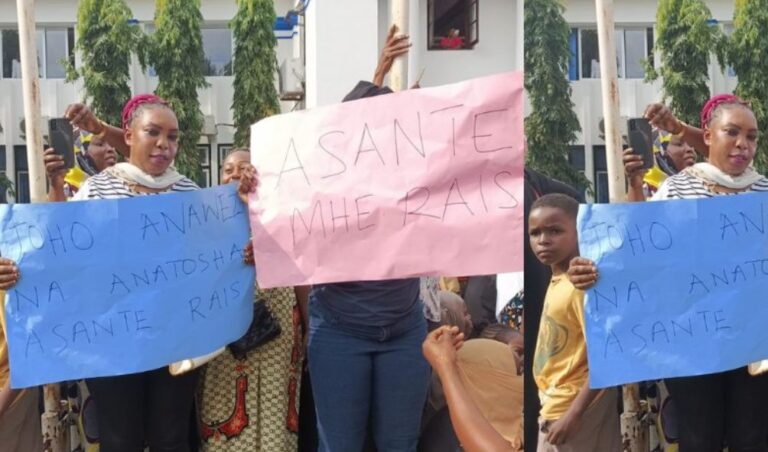 JOHO ANAWEZ
NA ANATOSHA
ASANTE RAIS
ASANTE
MHE RAIS
JOHO AN
NA ANATO
ASANTE